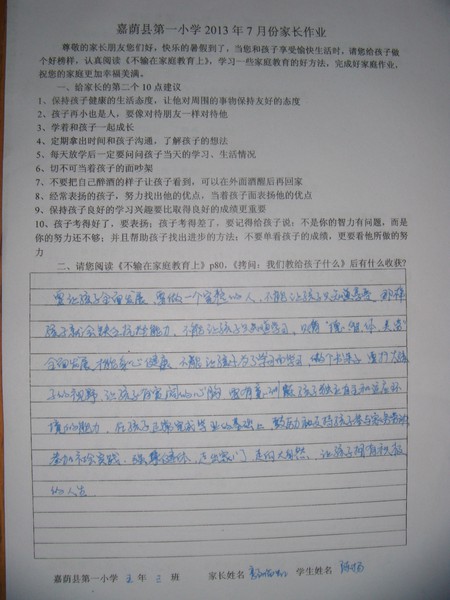 嘉荫县第一小学 2013 年 7 月份家长作业
尊敬的家长朋友您们好，快乐的暑假到了，当您和孩子享受愉快生活时，请您给孩子做
个好榜样，认真阅读《不输在家庭教育上》，学习一些家庭教育的好方法，完成好家庭作业，
祝您的家庭更加幸福美满。
一、给家长的第二个 10 点建议
1、保持孩子健康的生活态度，让他对周围的事物保持友好的态度
2、孩子再小也是人，要像对待朋友一样对待他
3、学着和孩子一起成长
4、定期拿出时间和孩子沟通，了解孩子的想法
5、每天放学后一定要问问孩子当天的学习、生活情况
6、切不可当着孩子的面吵架
7、不要把自己醉酒的样子让孩子看到，可以在外面酒醒后再回家
8、经常表扬的孩子，努力找出他的优点，当着孩子面表扬他的优点
9、保持孩子良好的学习兴趣要比取得良好的成绩更重要
10、孩子考得好了，要表扬；孩子考得差了，要记得给孩子说：不是你的智力有问题，而是
你的努力还不够；并且帮助孩子找出进步的方法；不要单看孩子的成绩，更要看他所做的努
力
二、请您阅读《不输在家庭教育上》p80，《拷问：我们教给孩子什么》后有什么收获？
要让孩子全面发展，要做一个完整的人，不能让孩子只知道享受，那样
孩子就会缺乏
能力，不能让孩子只知道学习，只有"德、智、体、美、劳"
全面发展，才能身心健康，不能让孩子为了学习而学习，做个书呆子，
子的视野，让孩子有宽阔的心胸，
孩子独立自主和适应环
境的能力，在孩子正常完成学业的基础上，鼓励和支持孩子参与家务劳动
参加社会实践，
走出家门，走向大自然，让孩子拥有积极
的人生
嘉荫县第一小学 五 年 二 班 家长姓名 学生姓名